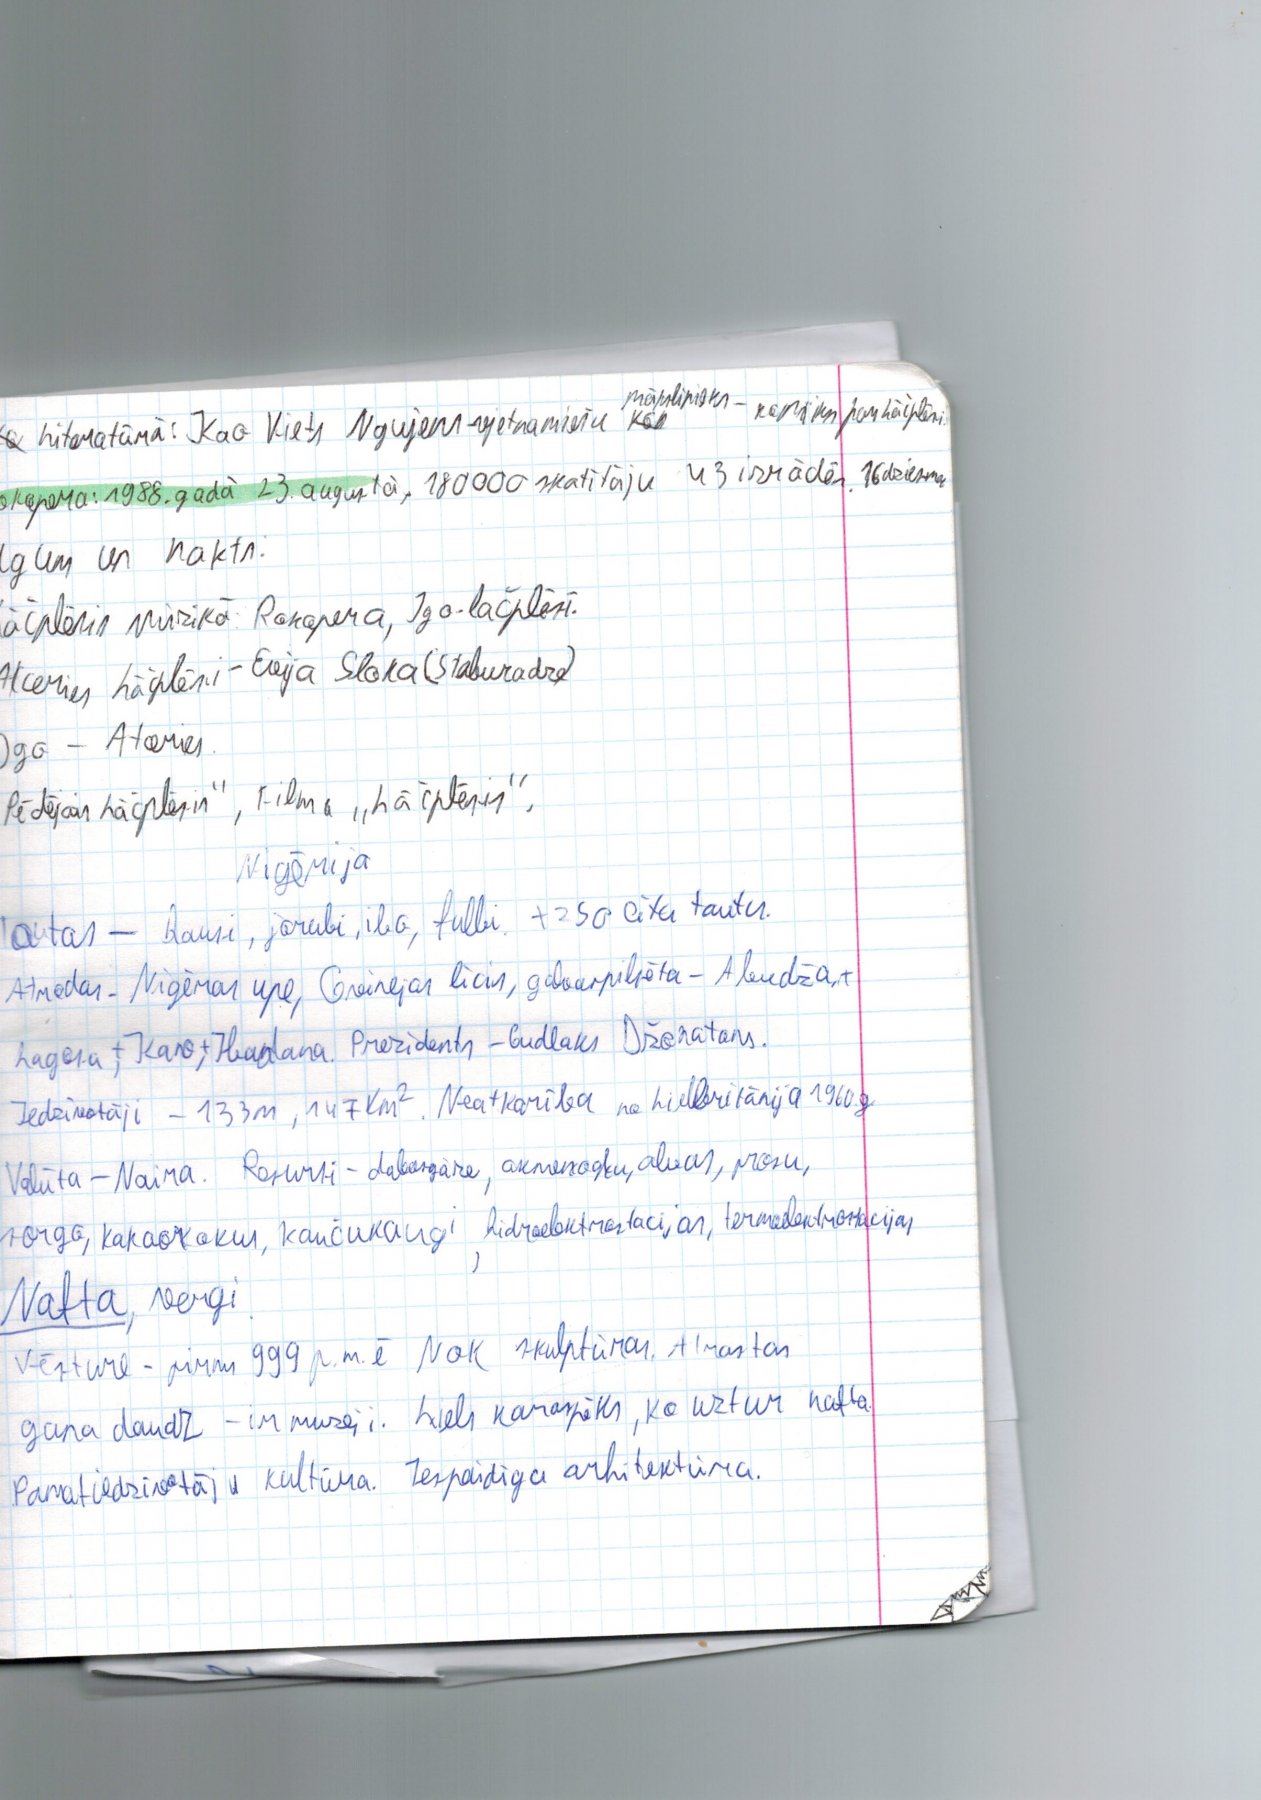 Literatūrā: Kao Viets Ngujens-vjetnamiešu mākslinieks - komikss par Lāčplēsi.
okopera: 1988. gadā 23. augustā, 180000 skatītāju uz izrādēs. 16 dziesmas
lgum un Nakts.
āčplēsis mūzikā: Rokopera, Igo-Lāčplēsi.
Atceries Lāčplēsi - Evija Sloka (Staburadze)
Igo - Atceries.
Pēdējais Lāčplēsis", Filma „Lāčplēsis",
Nigērija
Tautas - hausi, jorubi, ibo, fulbi. +250 citu tautu.
Atrodas - Nigēras upe, Gvinejas līcis, galvaspilsēta - Abudža, +
Lagosa +, Kano, + Ibadana. Prezidents - Gudlaks Džonatans.
Iedzīvotāji - 133m, 147Km². Neatkarība no Lielbritānija 1960.g
Valūta - Naira. Resursi - dabasgāze, akmeņogļu, alvas, prosu,
sorgo, kakaokokus, kaučukaugi, hidroelektrostacijas, termoelektrostacijas
Nafta, vergi.
Vēsture - pirms 999 p.m.ē NOK skulptūras. Atrastas
gana daudz - ir muzeji. Liels karaspēks, ko uztur nafta.
Pamatiedzīvotāju kultūra. Iespaidīga arhitektūra.